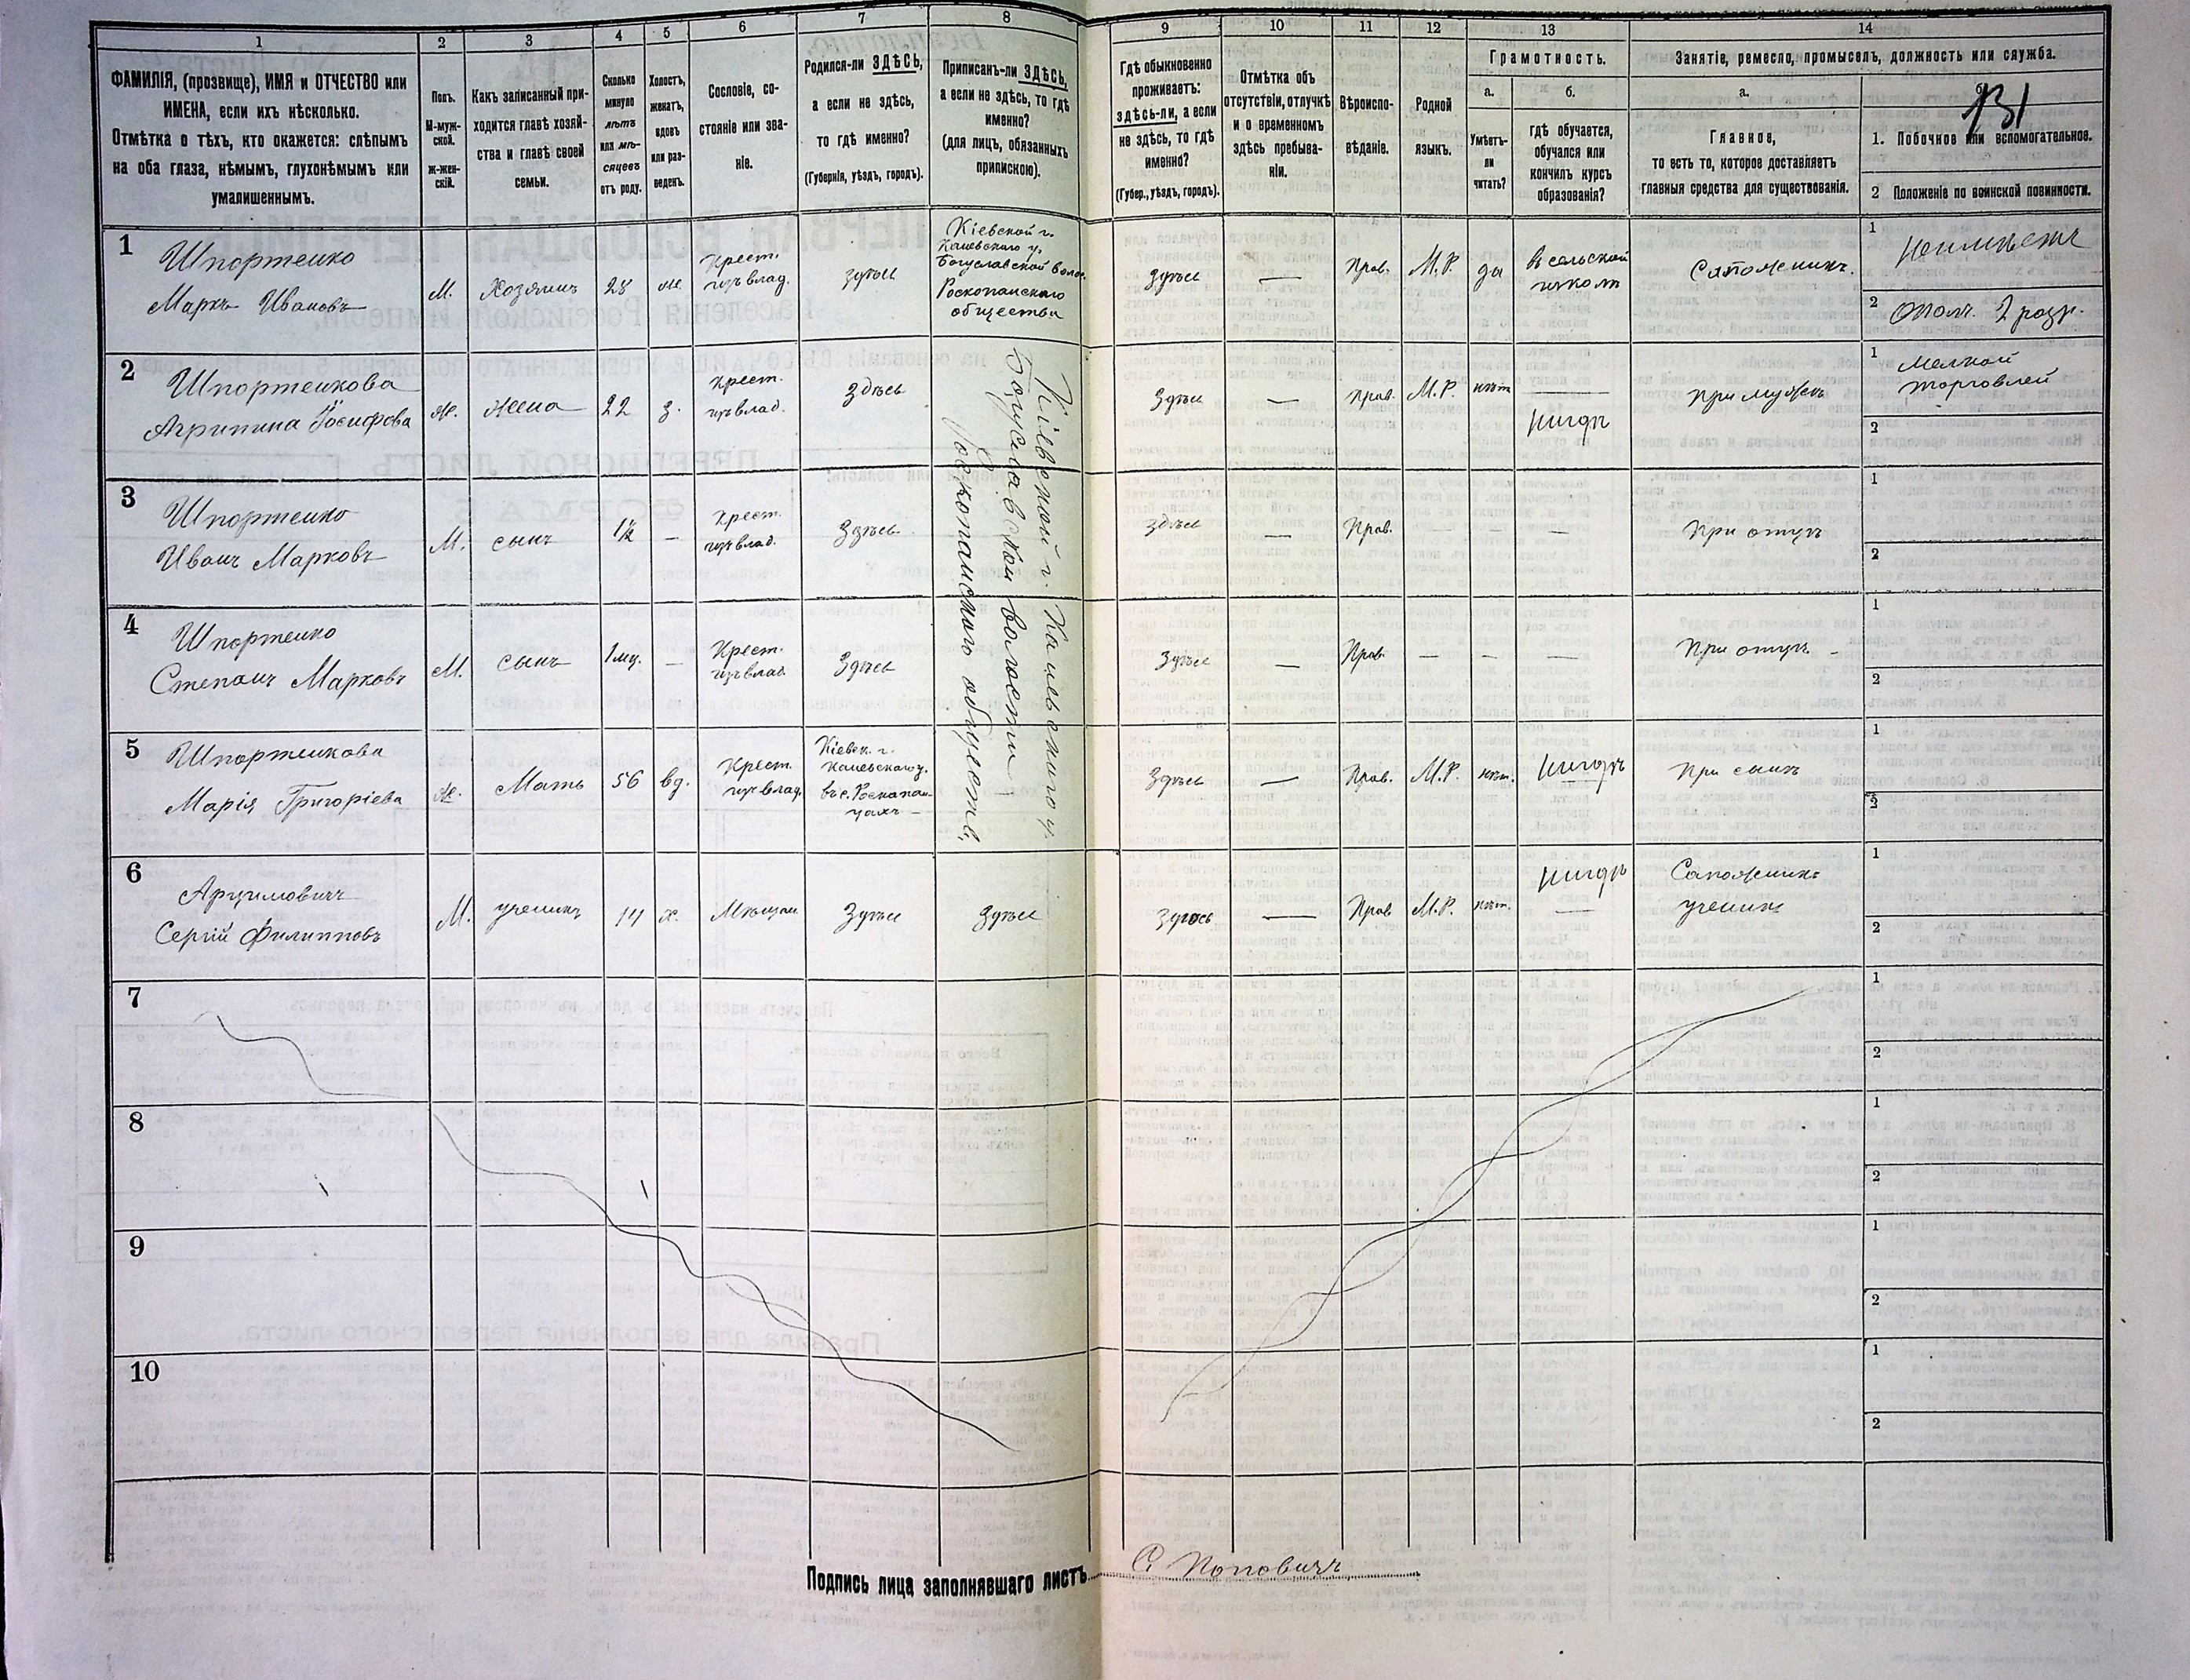 1
2
3
4
5
6
7
8
9
10
11
12
13
14
ФАМИЛІЯ, (прозвище), ИМЯ и ОТЧЕСТВО или
ИМЕНА, если ихъ нѣсколько.
Отмѣтка о тѣхъ, кто окажется: слѣпымъ
на оба глаза, нѣмымъ, глухонѣмымъ или
умалишеннымъ.
Полъ.
М-муж-
ской.
ж-жен-
скій.
Какъ записанный при-
ходится главѣ хозяй-
ства и главѣ своей
семьи.
Сколько
минуло
лѣтъ
или мѣ-
сяцевъ
отъ роду.
Холостъ,
женатъ,
вдовъ
или раз-
веденъ.
Сословіе, со-
стояніе или зва-
ніе.
Родился-ли ЗДѢСЬ,
а если не здѣсь,
то гдѣ именно?
(Губернія, уѣздъ, городъ).
Приписанъ-ли ЗДѢСЬ,
а если не здѣсь, то гдѣ
именно?
(для лицъ, обязанныхъ
припискою).
Гдѣ обыкновенно
проживаетъ:
здѣсь-ли, а если
не здѣсь, то гдѣ
именно?
(Губер., уѣздъ, городъ).
Отмѣтка объ
отсутствіи, отлучкѣ
и о временномъ
здѣсь пребыва-
ніи.
Вѣроиспо-
вѣданіе.
Родной
языкъ.
Грамотность.
а.
б.
Умѣетъ-
ли
читать?
гдѣ обучается,
обучался или
кончилъ курсъ
образованія?
Занятіе, ремесло, промыселъ, должность или служба.
а.
б.
131
Главное,
то есть то, которое доставляетъ
главныя средства для существованія.
1. Побочное или вспомогательное.
2 Положеніе по воинской повинности.
1
Шпортенко
Маркъ Ивановъ
М.
Хозяинъ
28
ж.
Крест.
изъ влад.
здѣсь
Кіевской г.
Каневскаго у.
Богуславской волос.
Роскопанскаго
общества
здѣсь
—
Прав.
М.Р.
да
въ сельской
школѣ
Сапожникъ.
1
Неимѣетъ
2
Опол. 2 разр.
2
Шпортенкова
Агрипина Іосифова
ж.
жена
22
з.
Крест.
изъ влад.
Здѣсь
Кіевской г. Каневскаго у.
Богуславской волости
Роскопанскаго общества,
Здѣсь
—
Прав.
М.Р.
нѣт
—
Нигдѣ
При мужѣ
1
Мелкой
торговлей
2
3
Шпортенко
Иванъ Марковъ
М.
сынъ
1½
—
Крест.
изъ влад.
Здѣсь
Здѣсь
—
Прав.
—
—
—
При отцѣ
1
2
4
Шпортенко
Степанъ Марковъ
М.
сынъ
1 мц.
—
Крест.
изъ влад.
Здѣсь
Здѣсь
—
Прав.
—
—
—
При отцѣ
1
2
5
Шпортенкова
Марія Григоріева
ж.
Мать
56
вд.
Крест.
изъ влад.
Кіевск. г.
Каневскаго у.
въ с. Роскопан-
цахъ
Здѣсь
—
Прав.
М.Р.
нѣт.
Нигдѣ
При сынѣ
1
2
6
Арцимовичъ
Сергій Филипповъ
М.
ученикъ
14
х.
Мѣщан.
Здѣсь
Здѣсь
Здѣсь
—
Прав
М.Р.
нѣт.
Нигдѣ
—
Сапожникъ
ученикъ
1
2
7
1
2
8
1
2
9
1
2
10
1
2
Подпись лица заполнявшаго листъ
С. Поповичъ